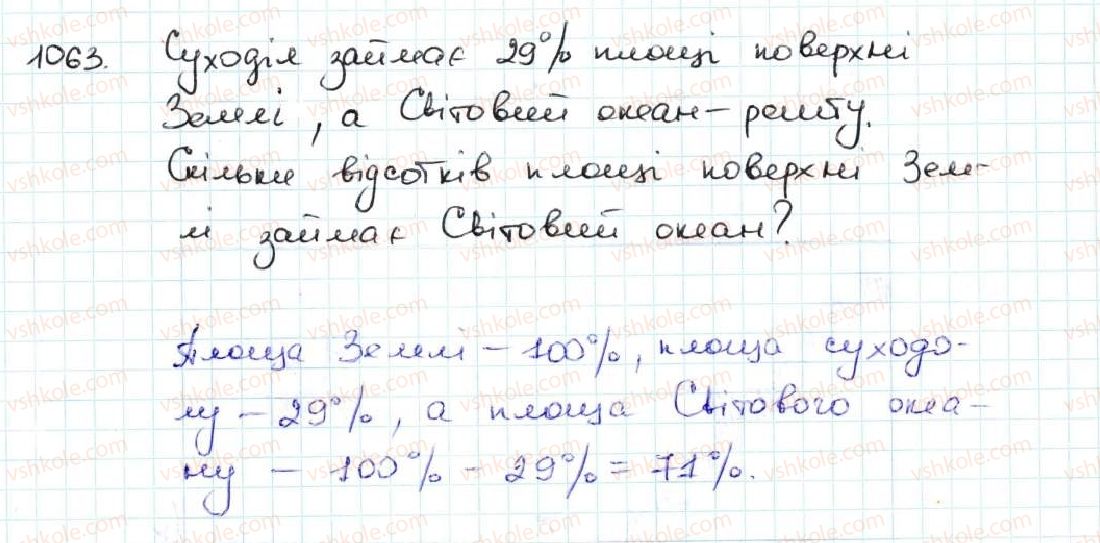 1063. Суходіл займає 29% площі поверхні
Землі, а Світовий океан - решту.
Скільки відсотків площі поверхні Зем-
лі займає Світовий океан?
Площа Землі - 100%, площа суходо-
лу - 29%, а площа Світового океа-
ну - 100% - 29% = 71%.